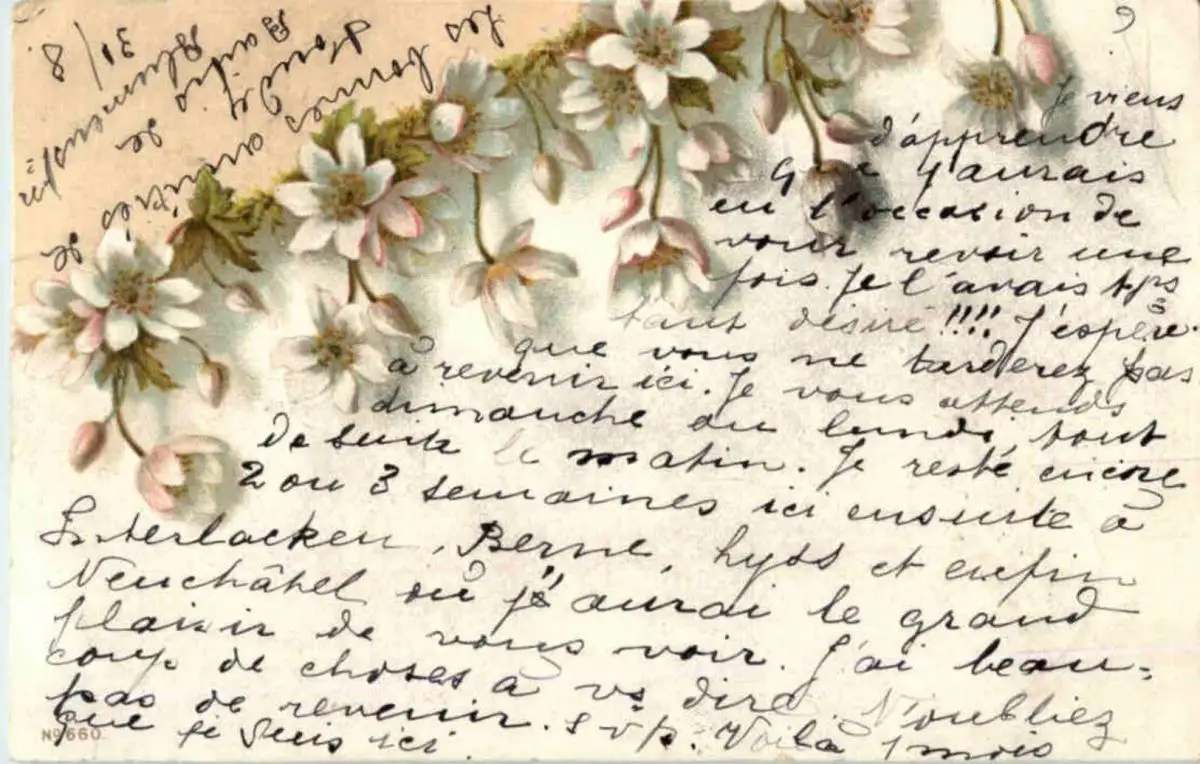 Je viens
d'apprendre
que j'aurais
eu l'occasion de
vous revoir une
fois. Je l'avais tps
tant désiré!!!! J'espère
que vous ne tarderez pas
à revenir ici. Je vous attends
dimanche ou lundi, tout
de suite le matin. Je reste encore
2 ou 3 semaines ici ensuite à
Interlacken, Berne, Lyss et enfin
Neuchâtel où j'aurai le grand
plaisir de vous voir. J'ai beau-
coup de choses à vs dire. N'oubliez
pas de revenir. s v p. Voilà 1 mois
que je suis ici.
No 660
31/8